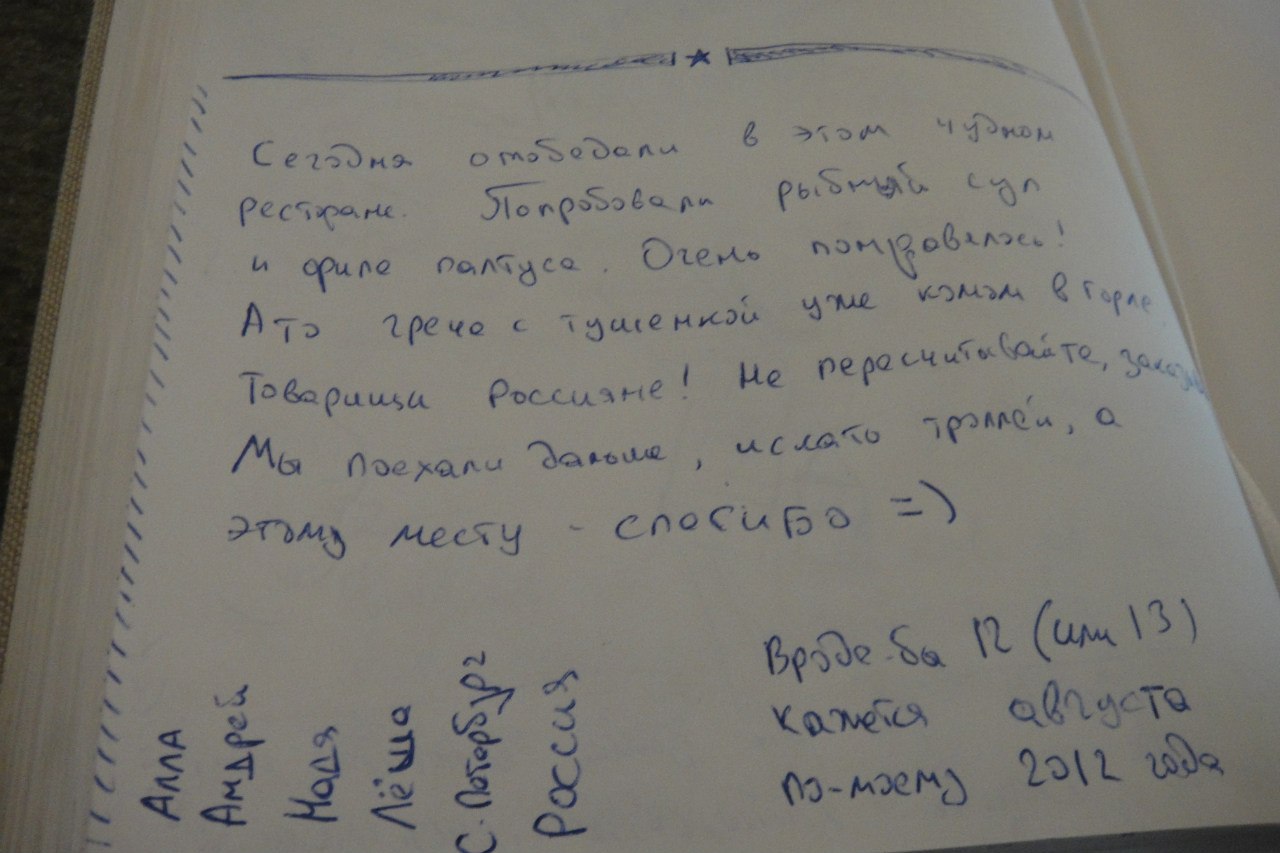 Сегодня отобедали в этом чудном
ресторане. Попробовали рыбный суп
и филе палтуса. Очень понравилось!
А то греча с тушенкой уже комом в горле.
Товарищи Россияне! Не пересчитывайте,
Мы поехали дальше, искать троллей, а
этому месту - спасибо =)
Вроде-бы 12 (или 13)
кажется августа
по-моему 2012 года
Алла
Андрей
Надя
Лёша
С. Петербург
Россия